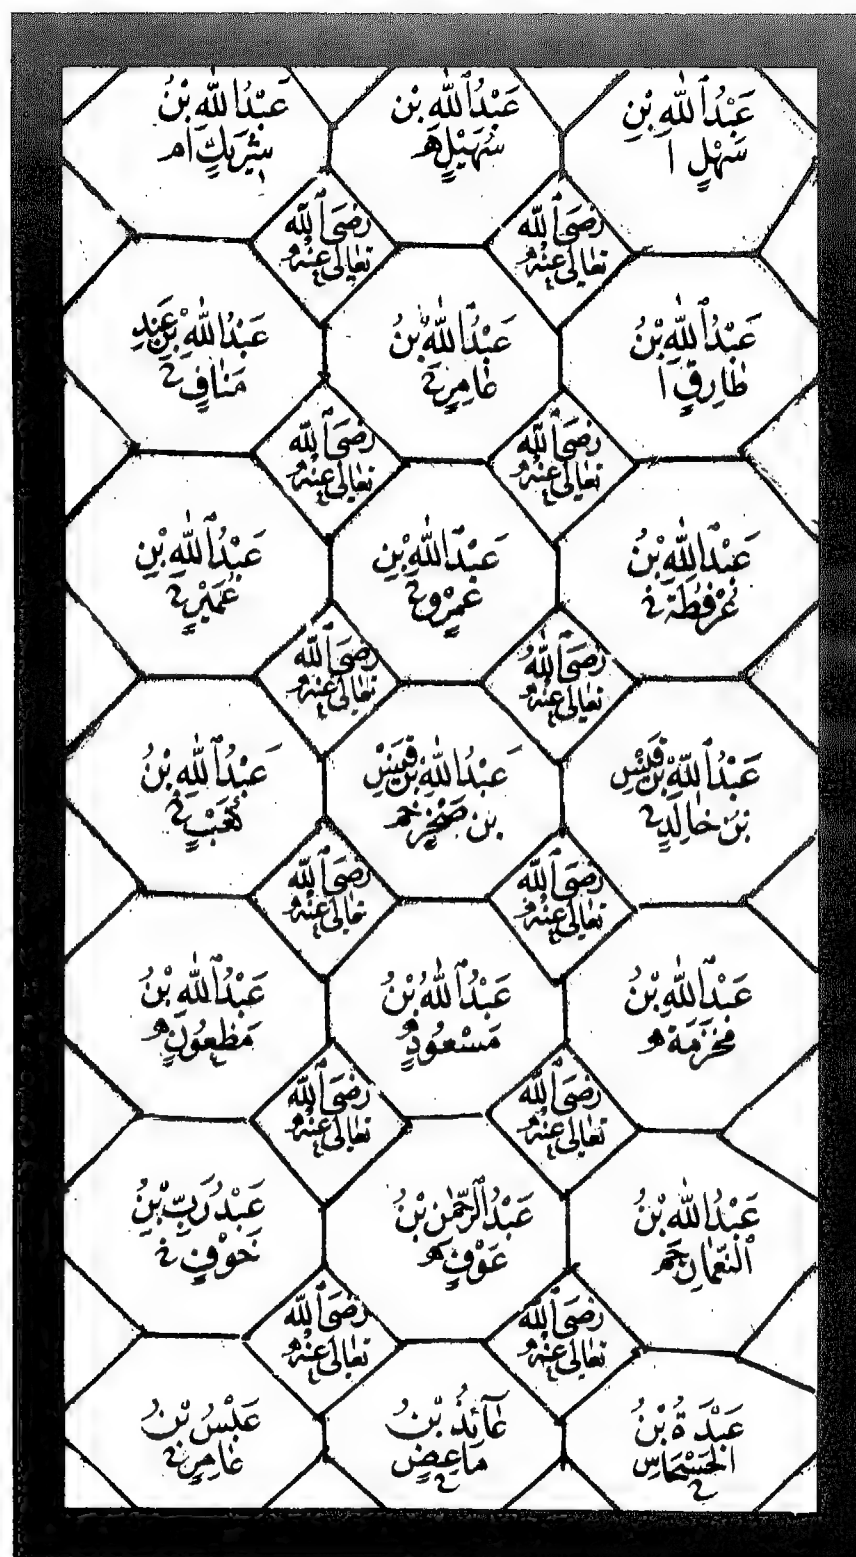 عَبْدُ ٱللّٰهِ بْنِ
سَهْلٍ ا
عَبْدُ ٱللّٰهِ بْن
سُهَيْلٍ
عَبْدُ ٱللّٰهِ بْنُ
شَرِيكٍ ا م
رَضِىَ ٱللّٰه
تعالى عنه
رَضِىَ ٱللّٰه
تعالى عنه
عَبْدُ ٱللّٰهِ بْنُ
طَارِقٍ ا
عَبْدُ ٱللّٰهِ بْنُ
عَامِرٍ
عَبْدُ ٱللّٰهِ بْنِ عَبْدِ
مَنَافٍ
رَضِىَ ٱللّٰه
تعالى عنه
رَضِىَ ٱللّٰه
تعالى عنه
عَبْدُ ٱللّٰهِ بْنُ
عُرْفُطَة
عَبْدُ ٱللّٰهِ بْنِ
عَمْرٍو
عَبْدُ ٱللّٰهِ بْنِ
عُمَيْرٍ
رَضِىَ ٱللّٰه
تعالى عنه
رَضِىَ ٱللّٰه
تعالى عنه
عَبْدُ ٱللّٰهِ بْن قَيْسِ
بْن خَالِدٍ
عَبْدُ ٱللّٰهِ بْن قَيْسِ
بن صَخْرٍ
عَبْدُ ٱللّٰهِ بْنُ
كَعْبٍ
رَضِىَ ٱللّٰه
تعالى عنه
رَضِىَ ٱللّٰه
تعالى عنه
عَبْدُ ٱللّٰهِ بْنُ
مَخْرَمَة
عَبْدُ ٱللّٰهِ بْنُ
مَسْعُودٍ
عَبْدُ ٱللّٰهِ بْنُ
مَظْعُونٍ
رَضِىَ ٱللّٰه
تعالى عنه
رَضِىَ ٱللّٰه
تعالى عنه
عَبْدُ ٱللّٰهِ بْنُ
ٱلنُّعْمَانِ
عَبْدُ ٱلرَّحْمٰنِ بْنُ
عَوْفٍ
عَبْدُ رَبِّ بْنِ
حَوْفٍ
رَضِىَ ٱللّٰه
تعالى عنه
رَضِىَ ٱللّٰه
تعالى عنه
عَبْدَةُ بْنُ
الْحَسْحَاسِ
عَآئِذُ بْنُ
مَاعِضٍ
عَبْسُ بْنُ
عَامِرٍ